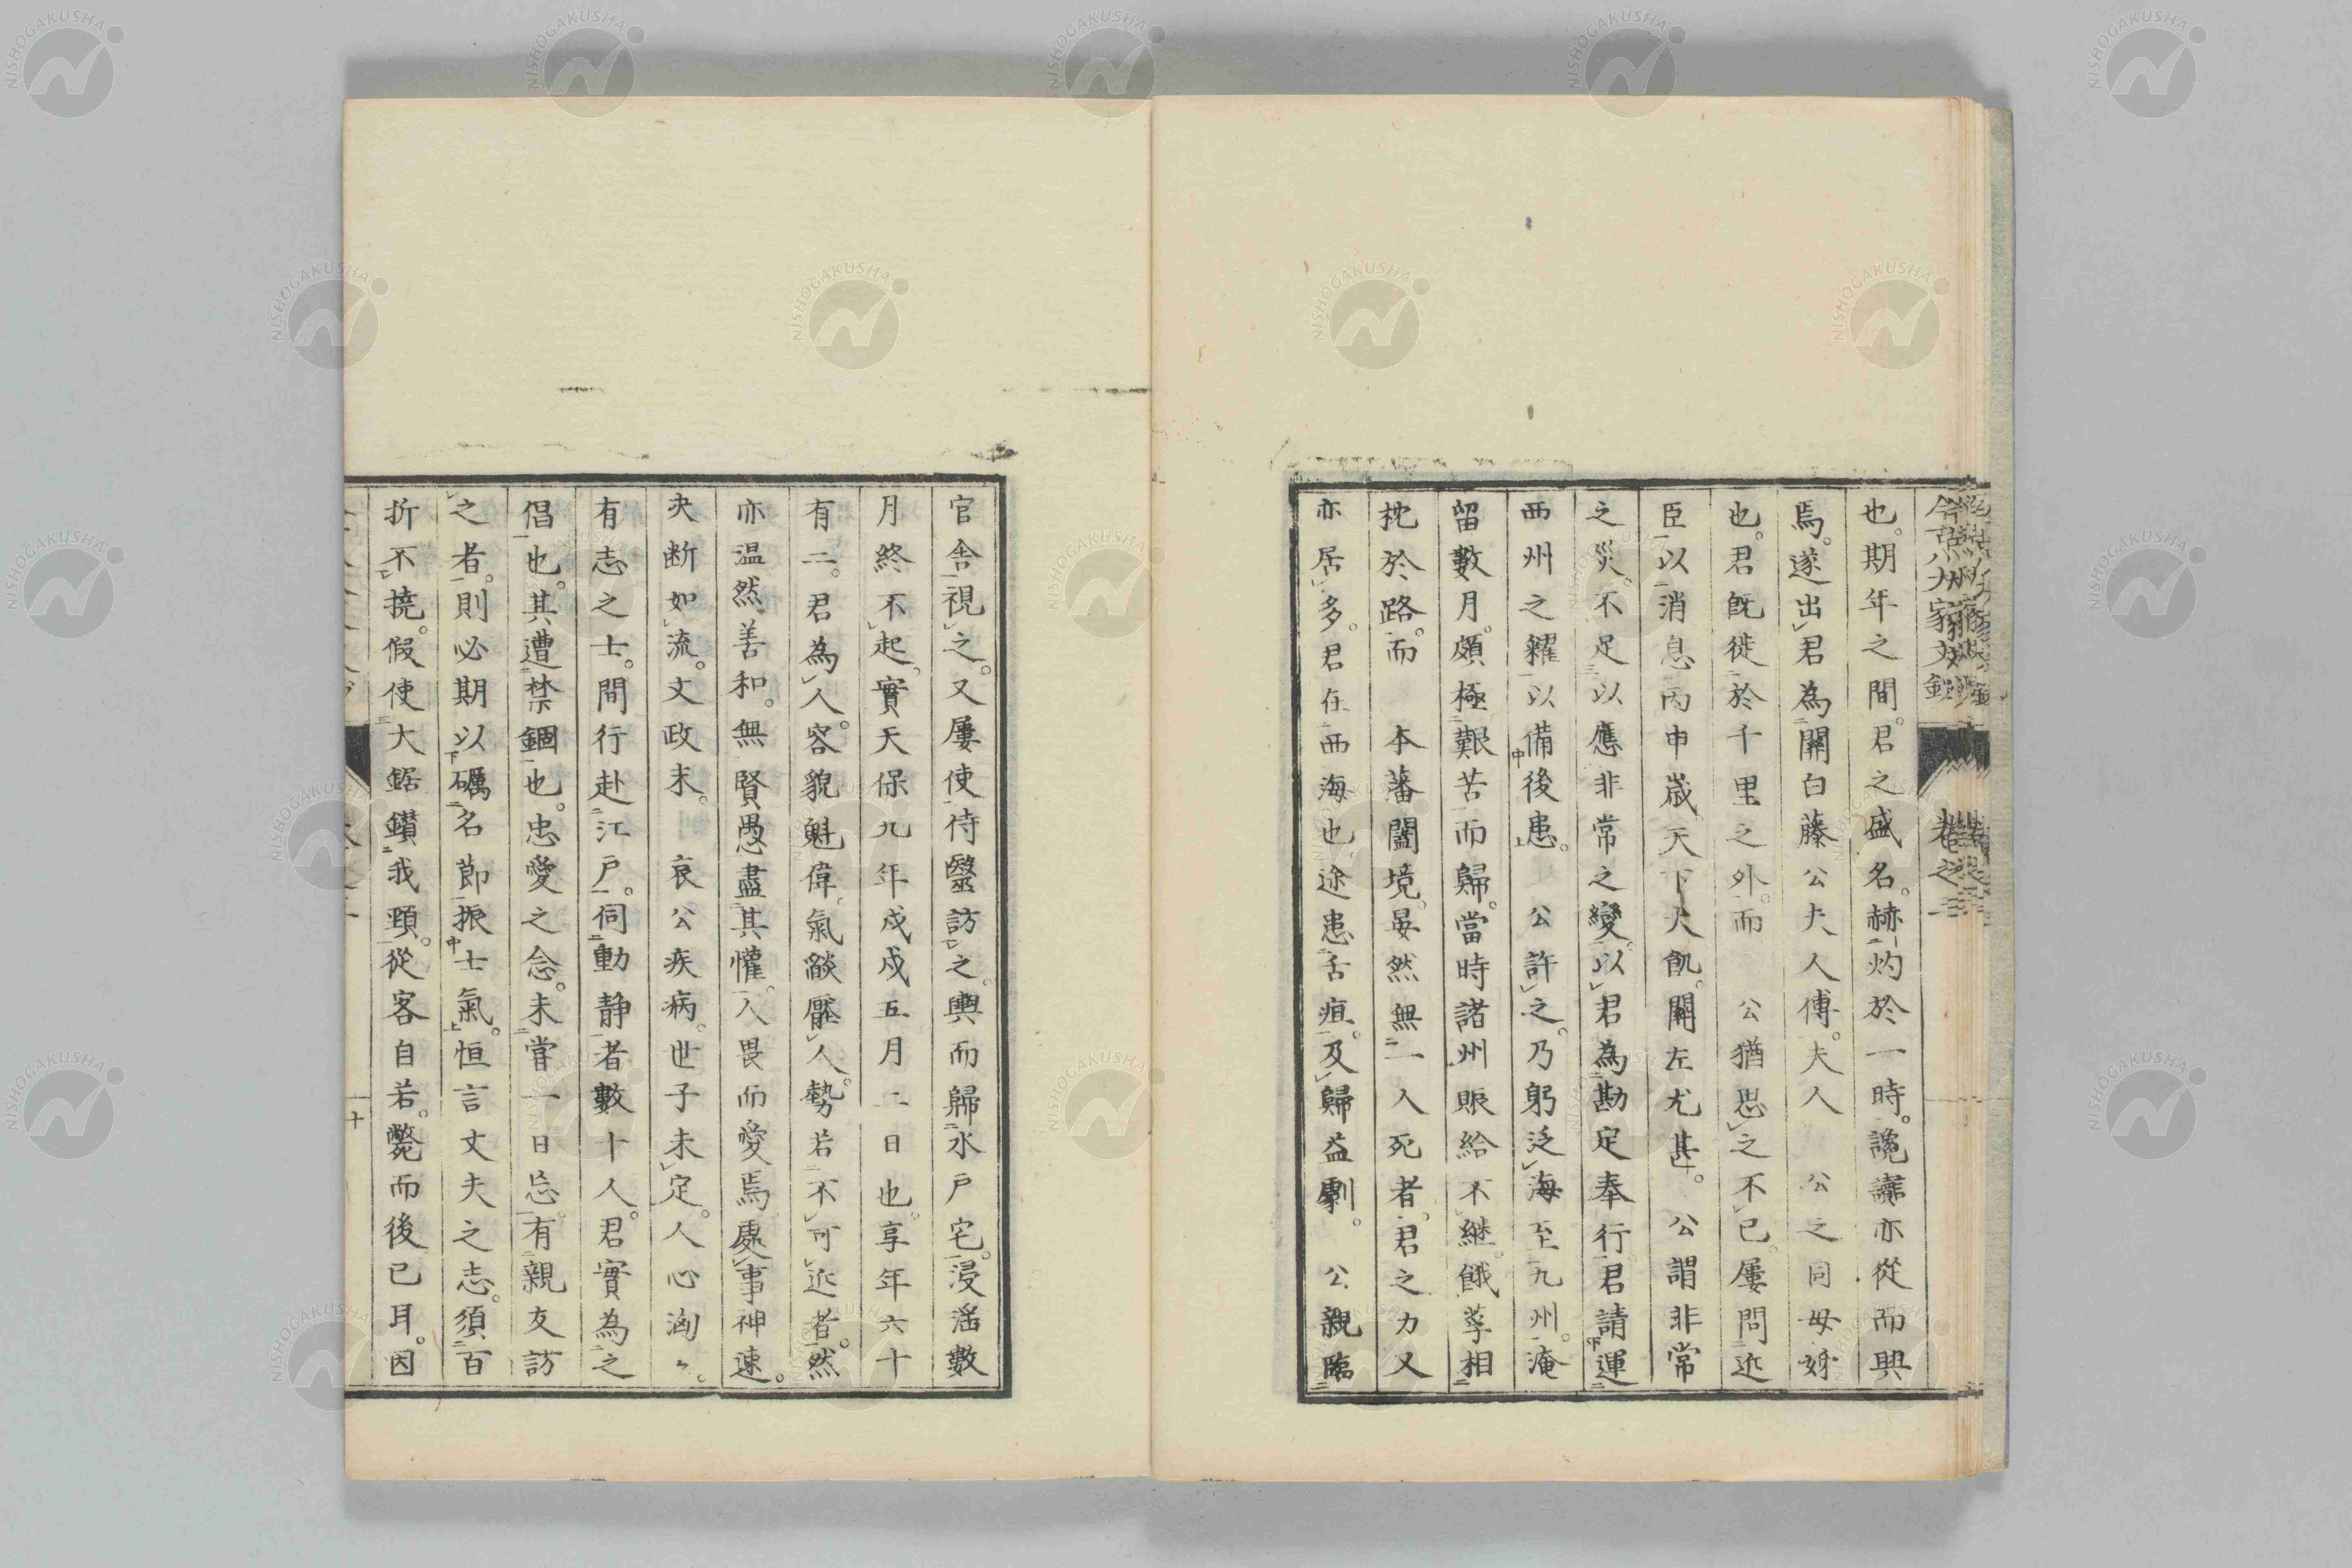 今古八大家文鈔 卷之三
也。期年之間。君之盛名。赫灼於一時。讒讟亦從而興
焉。遂出君為關白藤公夫人傅。夫人 公之同母姊
也。君既徙於千里之外。而 公猶思之不已。屢問近
臣以消息。丙申歲天下大飢。關左尤甚。 公謂非常
之災。不足以應非常之變。以君為勘定奉行。君請運
西州之糴以備後患。 公許之。乃躬泛海至九州。淹
留數月。頗極艱苦而歸。當時諸州賑給不継。餓莩相
枕於路。而 本藩闔境。晏然無一人死者。君之力又
亦居多。君在西海也途患舌疽。及歸益劇。 公親臨
官舎視之。又屢使侍毉訪之。輿而歸水戸宅。浸滛數
月終不起。實天保九年戊戌五月二日也。享年六十
有二。君為人。容貌魁偉。氣燄壓人。勢若不可近者。然
亦温然善和。無賢愚盡其懽。人畏而愛焉。處事神速。
夬断如流。文政末。 哀公疾病。世子未定。人心洶々。
有志之士。間行赴江戸。伺動静者數十人。君實為之
倡也。其遭禁錮也。忠愛之念。未甞一日忘。有親友訪
之者。則必期以礪名節振士氣。恒言丈夫之志。須百
折不撓。假使大鋸鑚我頸。從客自若。斃而後已耳。因
十
NISHOGAKUSHA